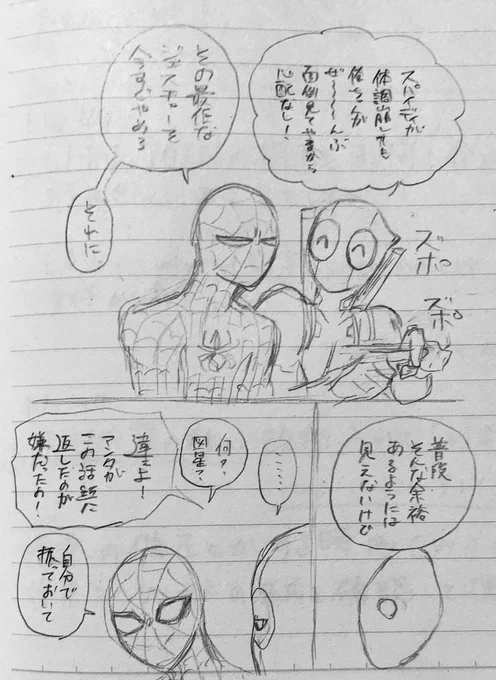 スパイディが
体調崩しても
俺さんが
ぜーーーんぶ
面倒見てやるから
心配なし!
ズポ
ズポ
その最低な
ジェスチャーを
今すぐやめろ
それに
普段
そんな余裕
あるようには
見えないけど
……
何?
図星?
違えよ!
アンタが
この話題に
返したのが
嫌だったの!
自分で
振っておいて